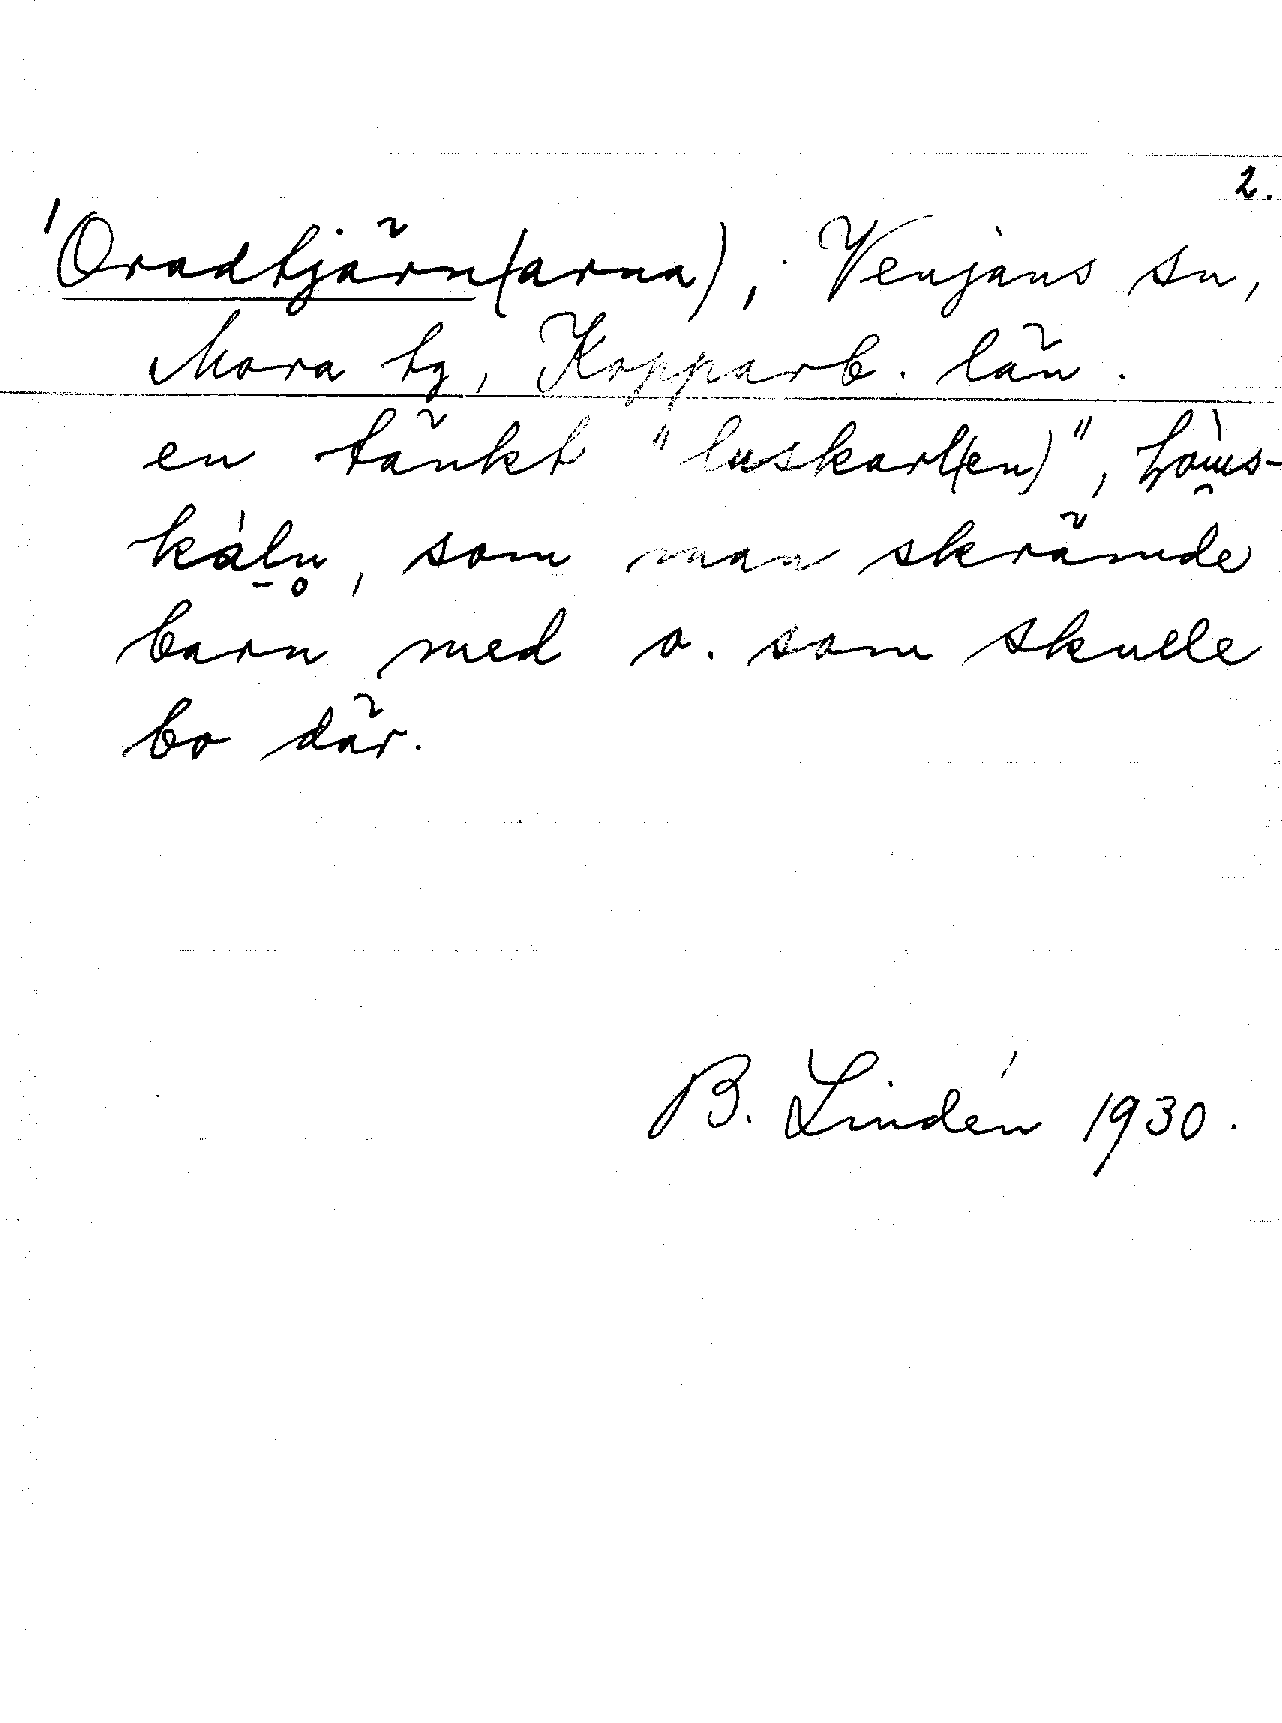 2.
'Oradtjärn(arna), Venjans sn,
Mora tg, Kopparb. län.
en tänkt "luskarl(en)",
som man skrämde
barn med o. som skulle
bo där.
B. Lindén 1930.